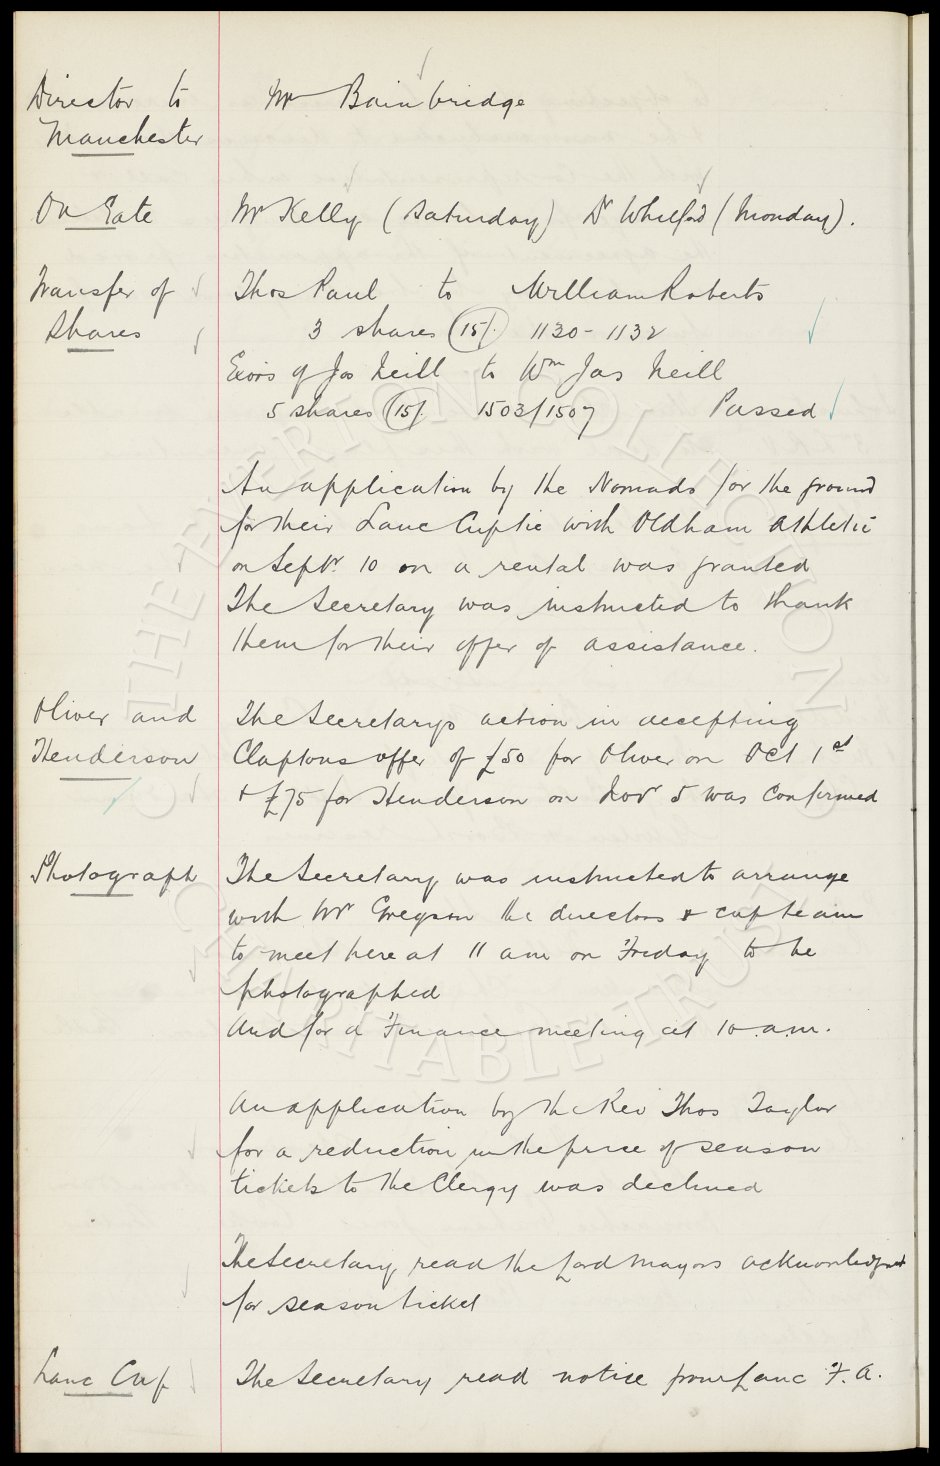 Director to Mr Bainbridge
Manchester
On Gate Mr Kelly (Saturday) Dr Whitford (Monday).
Transfer of Thos Paul to William Roberts
Shares 3 shares (15/. 1130 - 1132
Exors of Jos Neill to Wm Jas Neill
5 shares (15/. 1503/1507 Passed
An application by the Nomads for the ground
for their Lanc Cup tie with Oldham Athletic
on Septr 10 on a rental was granted
The Secretary was instructed to thank
them for their offer of assistance.
Oliver and The Secretarys action in accepting
Henderson Claptons offer of £50 for Oliver on Oct 1st
+ £75 for Henderson on Novr 5 was confirmed
Photograph The Secretary was instructed to arrange
with Mr Gregson the directors & cup team
to meet here at 11 am on Friday to be
photographed
And for a Finance meeting at 10 a.m.
An application by the Rev Thos Taylor
for a reduction in the price of season
tickets to the Clergy was declined
The Secretary read the Lord Mayors acknowledgmt
for season ticket
Lanc Cup The Secretary read notice from Lanc F.A.
© THE EVERTON COLLECTION
CHARITABLE TRUST